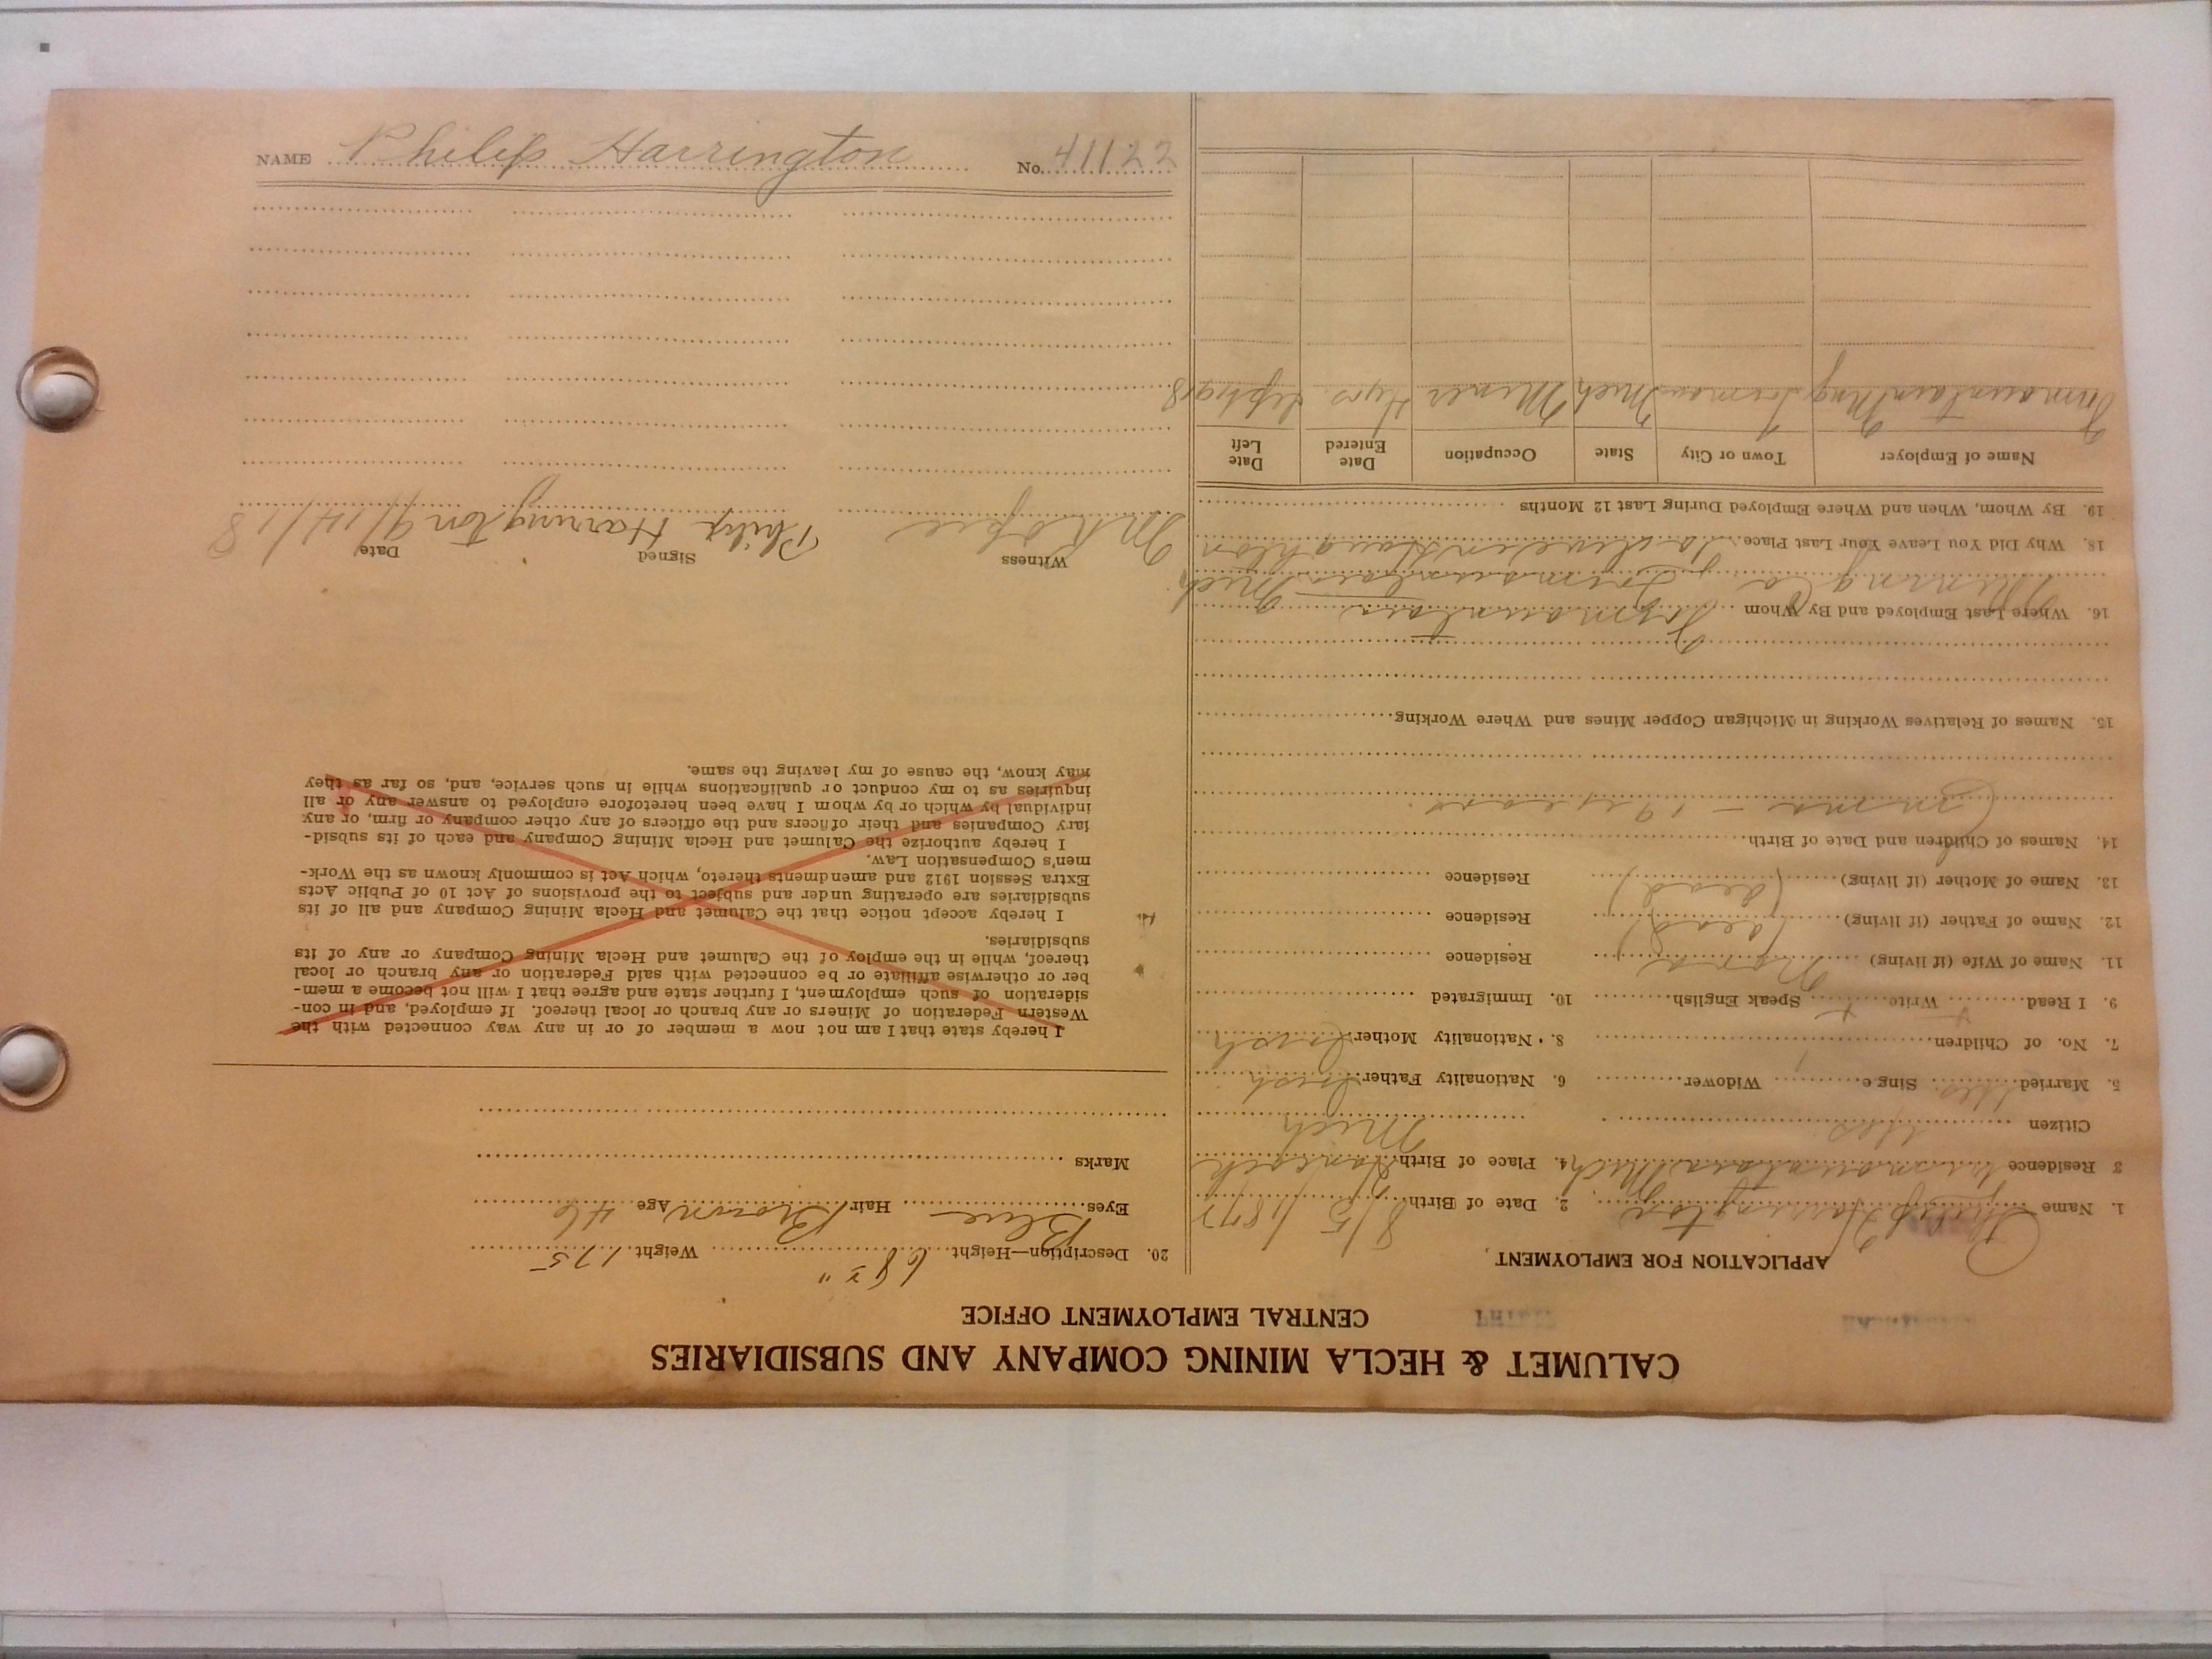 CALUMET & HECLA MINING COMPANY AND SUBSIDIARIES
CENTRAL EMPLOYMENT OFFICE
APPLICATION FOR EMPLOYMENT
1. Name Philip Harrington 2. Date of Birth 8/5/1877
3 Residence Mich 4. Place of Birth Hancock
Citizen Yes Mich
5. Married Yes Single Widower 6. Nationality Father Irish
7. No. of Children 1 8. Nationality Mother Irish
9. I Read Write Speak English 10. Immigrated
11. Name of Wife (if living) Nora Residence
12. Name of Father (if living) (dead) Residence
13. Name of Mother (if living) (dead) Residence
14. Names of Children and Date of Birth
Emma - 19 years
15. Names of Relatives Working in Michigan Copper Mines and Where Working
16. Where Last Employed and By Whom
Mining Co Mich
18. Why Did You Leave Your Last Place to live in Houghton
19. By Whom, When and Where Employed During Last 12 Months
Name of Employer Town or City State Occupation Date Entered Date Left
Mich Miner 4 yrs Sept 1918
20. Description—Height 68 Weight 175
Eyes Blue Hair Brown Age 46
Marks
I hereby state that I am not now a member of or in any way connected with the
Western Federation of Miners or any branch or local thereof. If employed, and in con-
sideration of such employment, I further state and agree that I will not become a mem-
ber or otherwise affiliate or be connected with said Federation or any branch or local
thereof, while in the employ of the Calumet and Hecla Mining Company or any of its
subsidiaries.
I hereby accept notice that the Calumet and Hecla Mining Company and all of its
subsidiaries are operating under and subject to the provisions of Act 10 of Public Acts
Extra Session 1912 and amendments thereto, which Act is commonly known as the Work-
men's Compensation Law.
I hereby authorize the Calumet and Hecla Mining Company and each of its subsid-
iary Companies and their officers and the officers of any other company or firm, or any
individual by which or by whom I have been heretofore employed to answer any or all
inquiries as to my conduct or qualifications while in such service, and, so far as they
may know, the cause of my leaving the same.
Witness Signed Date
Philip Harrington 9/14/18
NAME Philip Harrington No. 41122